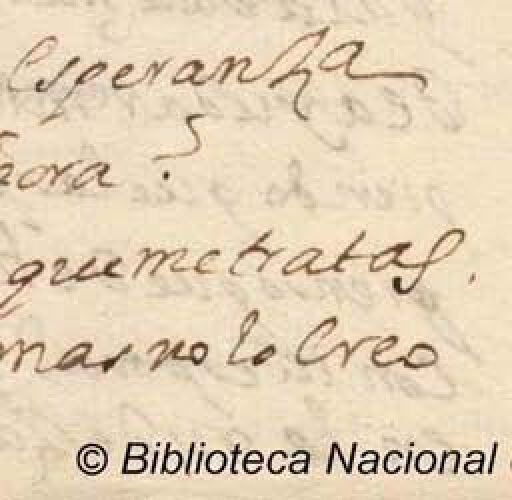 Esperanza
hora?
que me tratas.
mas no lo Creo
© Biblioteca Nacional